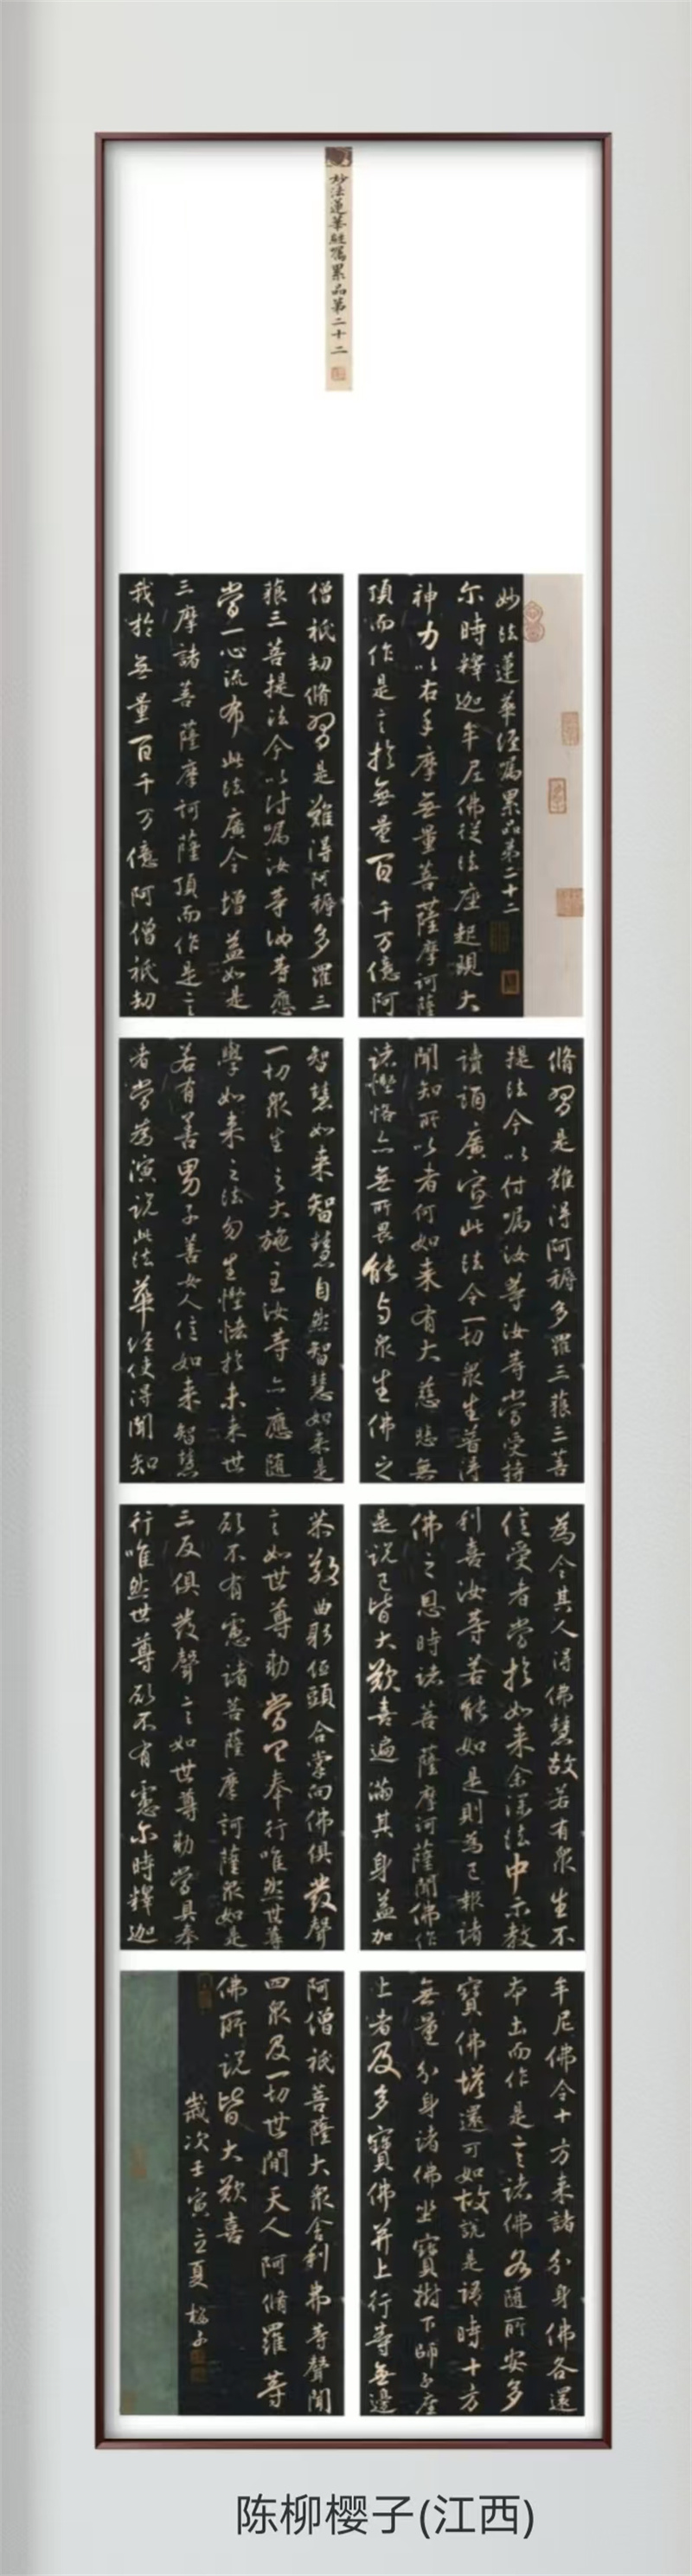 妙法蓮華經囑累品第二十二
妙法蓮華經囑累品第二十二
尒時釋迦牟尼佛從法座起現大
神力以右手摩無量菩薩摩訶薩
頂而作是言我於無量百千万億阿
僧祇劫脩習是難得阿耨多羅三
藐三菩提法今以付囑汝等汝等應
當一心流布此法廣令增益如是
三摩諸菩薩摩訶薩頂而作是言
我於無量百千万億阿僧祇劫
脩習是難得阿耨多羅三藐三菩
提法今以付囑汝等汝等當受持
讀誦廣宣此法令一切衆生普得
聞知所以者何如来有大慈悲無
諸慳悋亦無所畏能与衆生佛之
智慧如来智慧自然智慧如来是
一切衆生之大施主汝等亦應随
學如来之法勿生慳悋於未来世
若有善男子善女人信如来智慧
者當為演説此法華經使得聞知
為令其人得佛慧故若有衆生不
信受者當於如来餘深法中示教
利喜汝等若能如是則為已報諸
佛之恩時諸菩薩摩訶薩聞佛作
是説已皆大歡喜遍滿其身益加
恭敬曲躬低頭合掌向佛俱發聲
言如世尊勅當具奉行唯然世尊
願不有慮諸菩薩摩訶薩衆如是
三反俱發聲言如世尊勅當具奉
行唯然世尊願不有慮尒時釋迦
牟尼佛令十方来諸分身佛各還
本土而作是言諸佛各随所安多
寶佛塔還可如故説是語時十方
無量分身諸佛坐寶樹下師子座
上者及多寶佛并上行等無邊
阿僧祇菩薩大衆舍利弗等聲聞
四衆及一切世間天人阿脩羅等
佛所説皆大歡喜
歲次壬寅立夏 櫻子
陈柳樱子(江西)